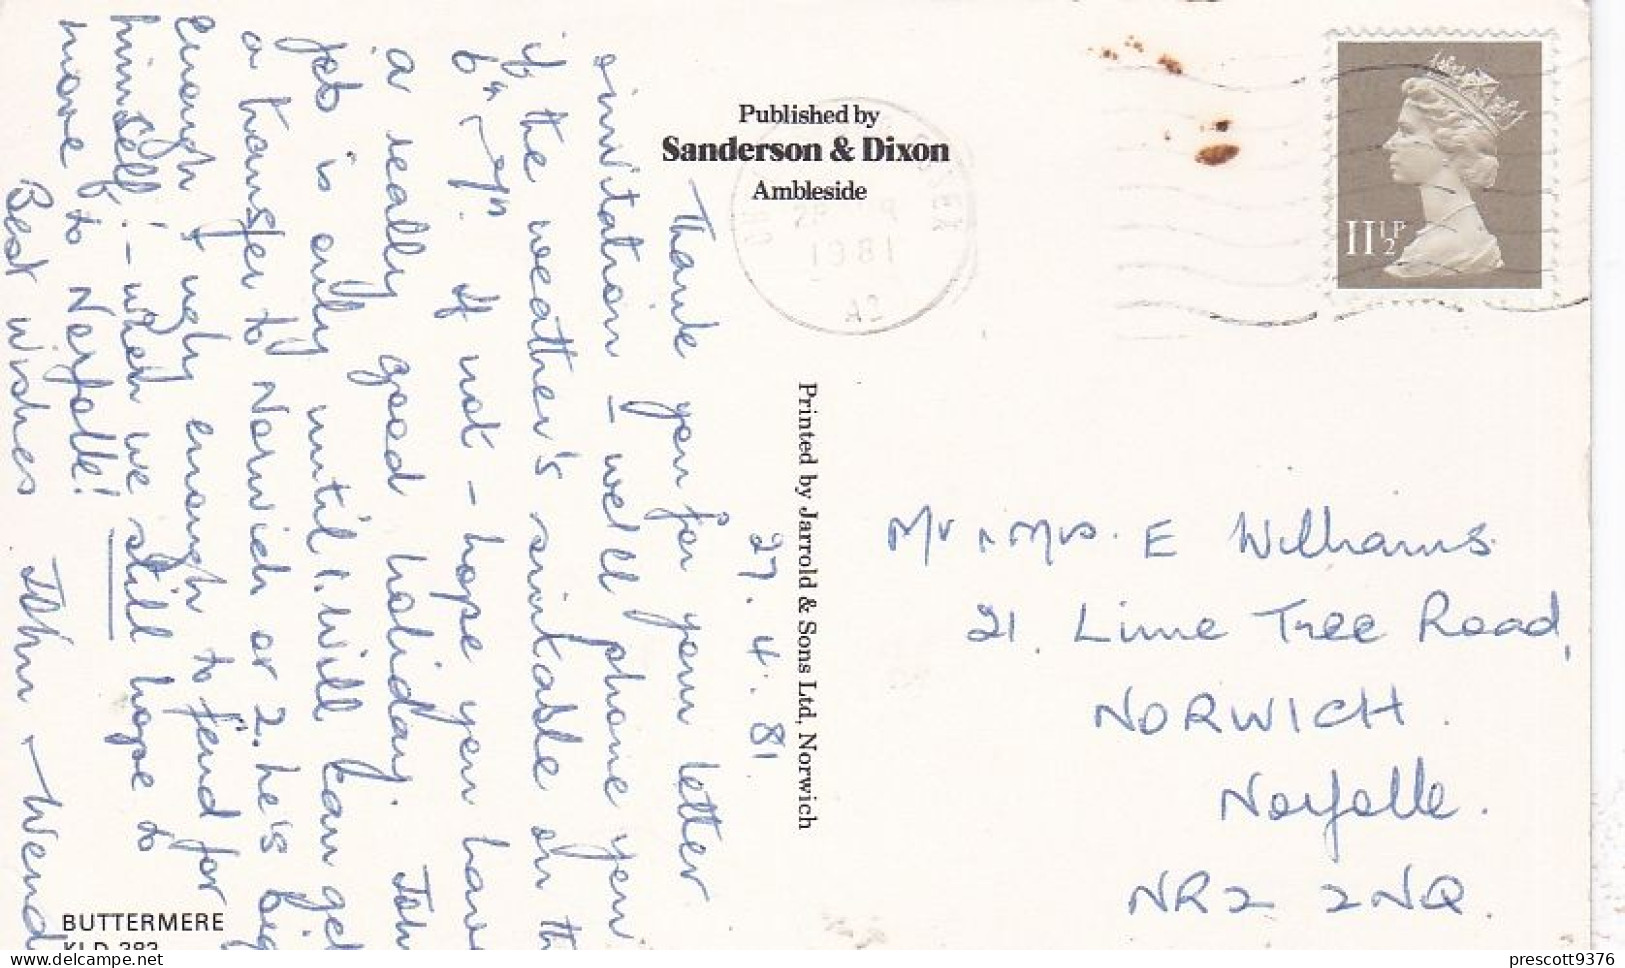 27.4.81
Thank you for your letter
invitation – we'll phone you
if the weather's suitable on th
6th – 7th. If not – hope you have
a really good holiday. John
job is only until 1. Will can get
a transfer to Norwich or 2. he's big
enough & ugly enough to fend for
himself! – when we still hope to
move to Norfolk!
Best wishes John – Wend
BUTTERMERE
KLD 383
Published by
Sanderson & Dixon
Ambleside
Printed by Jarrold & Sons Ltd, Norwich
1981
A2
11½P
Mr & Mrs. E Williams
21, Lime Tree Road,
NORWICH.
Norfolk.
NR2 2NQ.
prescott9376